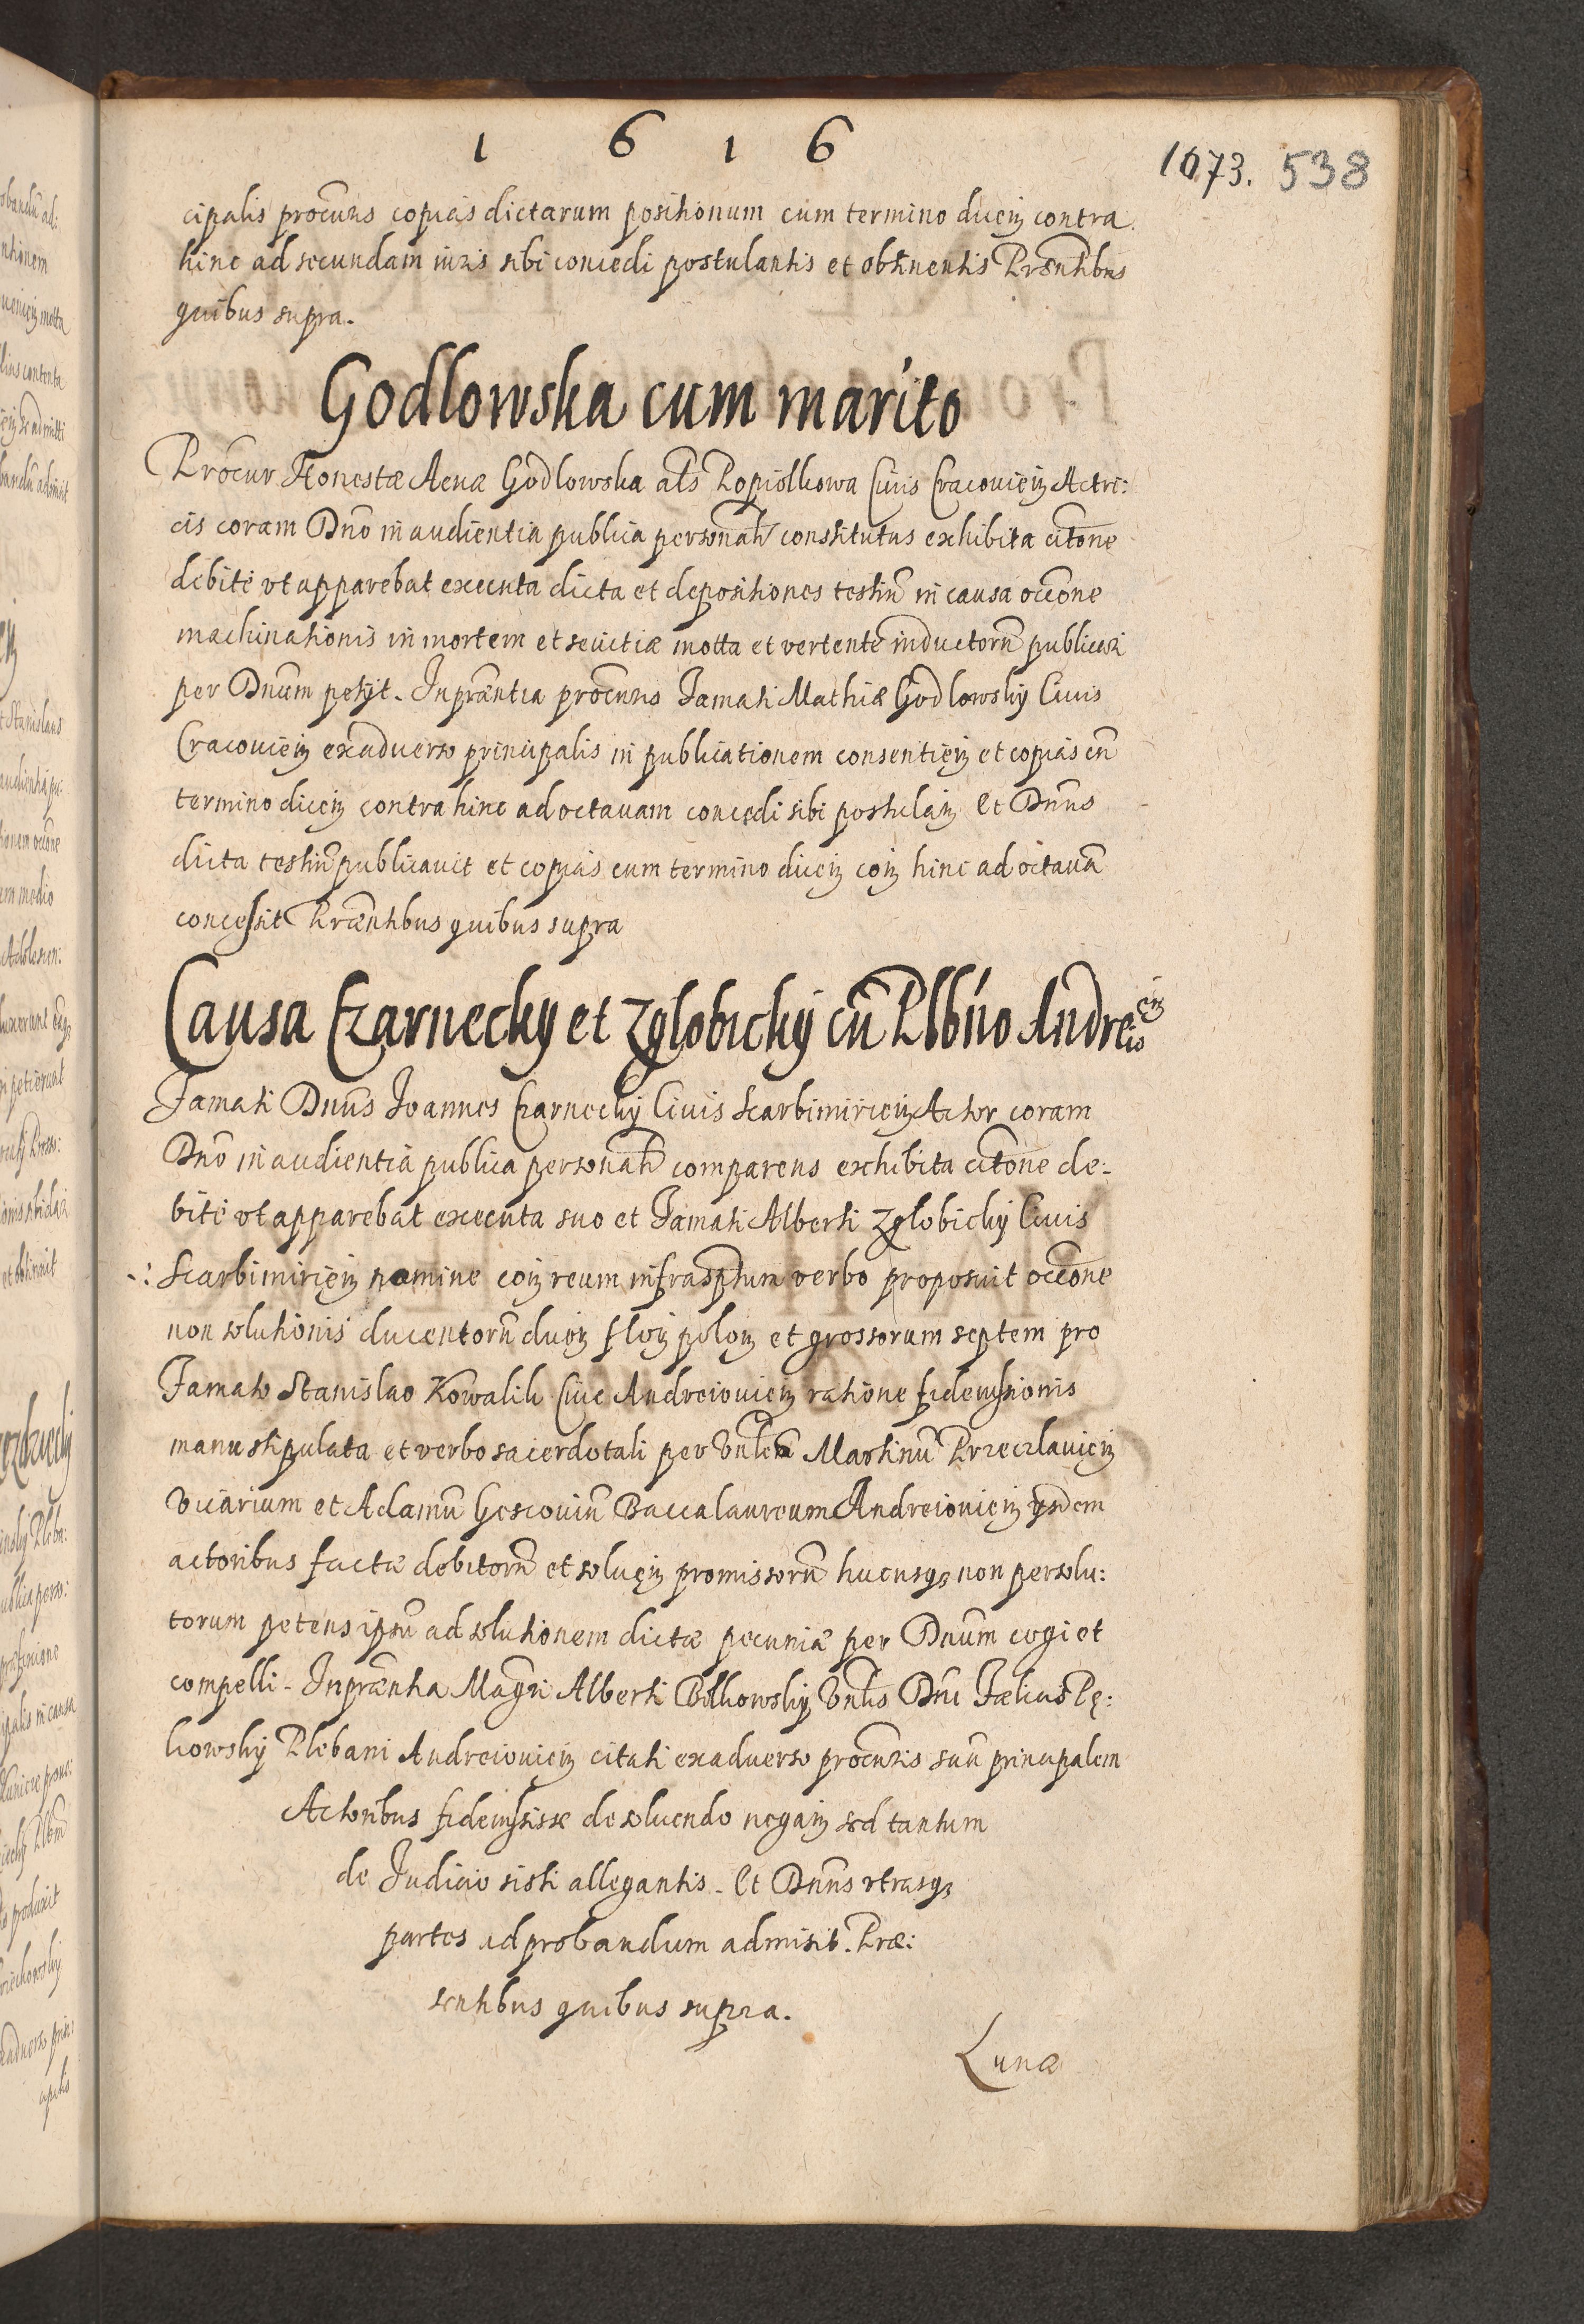 1 6 1 6
1073. 538
cipalis procuris copias dictarum positionum cum termino dicen contra
hinc ad secundam iuris sibi concedi postulantis et obtinentis Præntibus
quibus supra.
Godlowska cum marito
Procur Honestæ Annæ Godlowska als Popiolkowa Civis Cracovien Actri:
cis coram Dno in audientia publica personalr constitutus exhibita citone
debite vt apparebat executa dicta et depositiones testiu in causa occone
machinationis in mortem et sevitiæ motta et vertente inductoru publicari
per Dnum petyt. In præntia procuris Famati Mathiæ Godlowsky Civis
Cracovien ex adverso principalis in publicationem consentien et copias cu
termino dicen contra hinc ad octavam concedi sibi postulan Et Dnus
dicta testiu publicavit et copias cum termino dicen con hinc ad octava
concessit Præntibus quibus supra
Causa Czarnecky et Zglobicky cu Plbno Andreio en
Famati Dnus Joannes Czarnecky Civis Scarbimirien Actor coram
Dno in audientia publica personalr comparens exhibita citone de:
bite vt apparebat executa suo et Famati Alberti Zglobicky Civis
Scarbimirien nomine con reum infrasptum verbo proposuit occone
non solutionis ducentoru duon flon polon et grossorum septem pro
Famato Stanislao Kowalik Cive Andreiovien ratione fideiussionis
manu stipulata et verbo sacerdotali per Vnlem Martinu Przeczlavien
Vicarium et Adamu Gescoviu Baccalaureum Andreiovien ysdem
actoribus factæ debitoru et soluen promissoru hucusq non persolu:
torum petens ipsu ad solutionem dictæ pecuniæ per Dnum cogi et
compelli. In præntia Magri Alberti Bilkowsky Vnlis Dni Fælicis Pę:
kowsky Plebani Andreiovien citati ex adverso procuris suu principalem
Actoribus fideiussisse de solvendo negan sed tantum
de Judicio sisti allegantis. Et Dnus vtrasq
partes ad probandum admisit. Præ:
sentibus quibus supra.
Lunæ